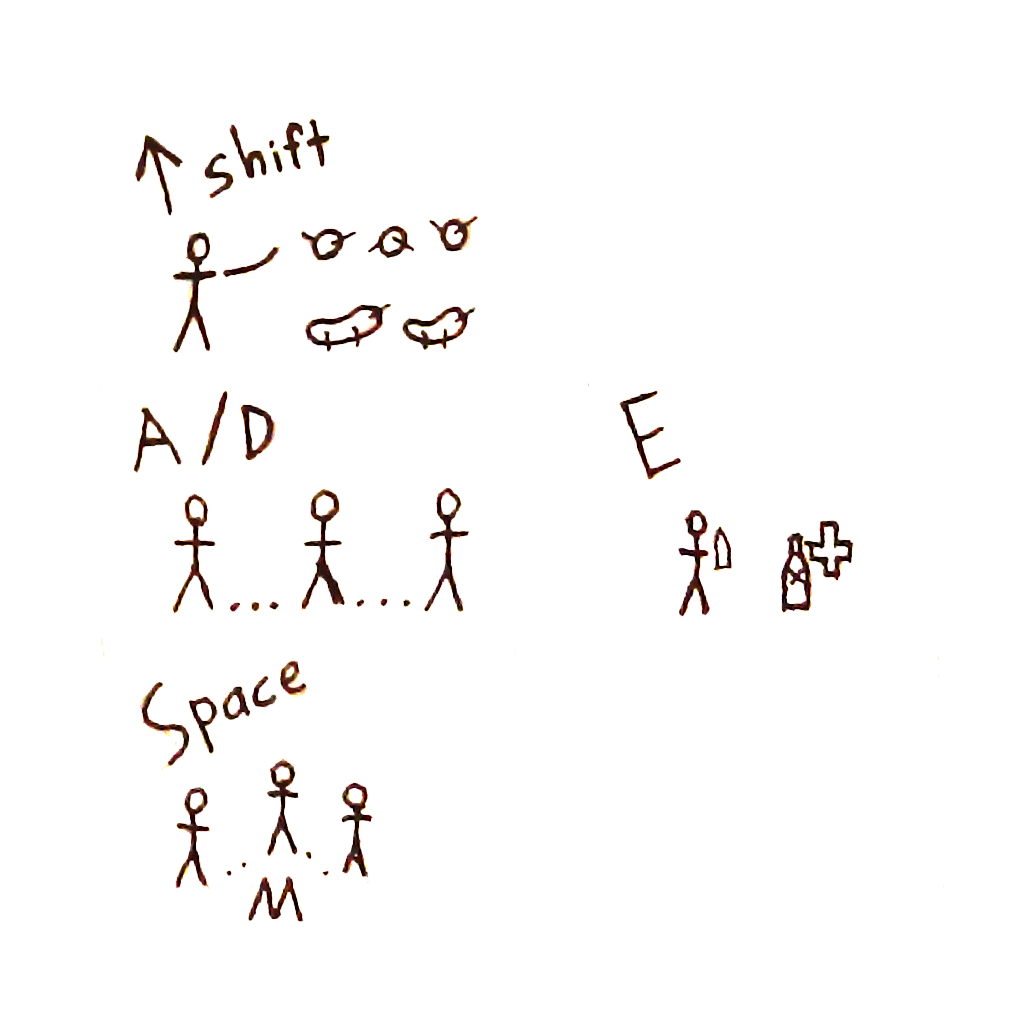 ↑ shift
A/D
E
Space